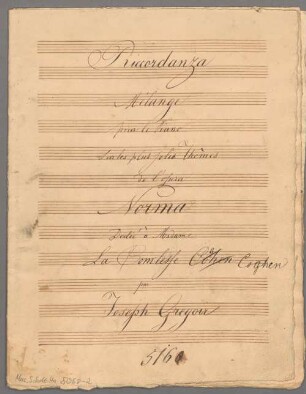 Riccordanza
Mélange
pour le Piano
Sur les plus jolis thèmes
de l'opera
Norma
Dediée à Madame
La Comtesse Cohen Coghen
par
Joseph Gregoir
5160